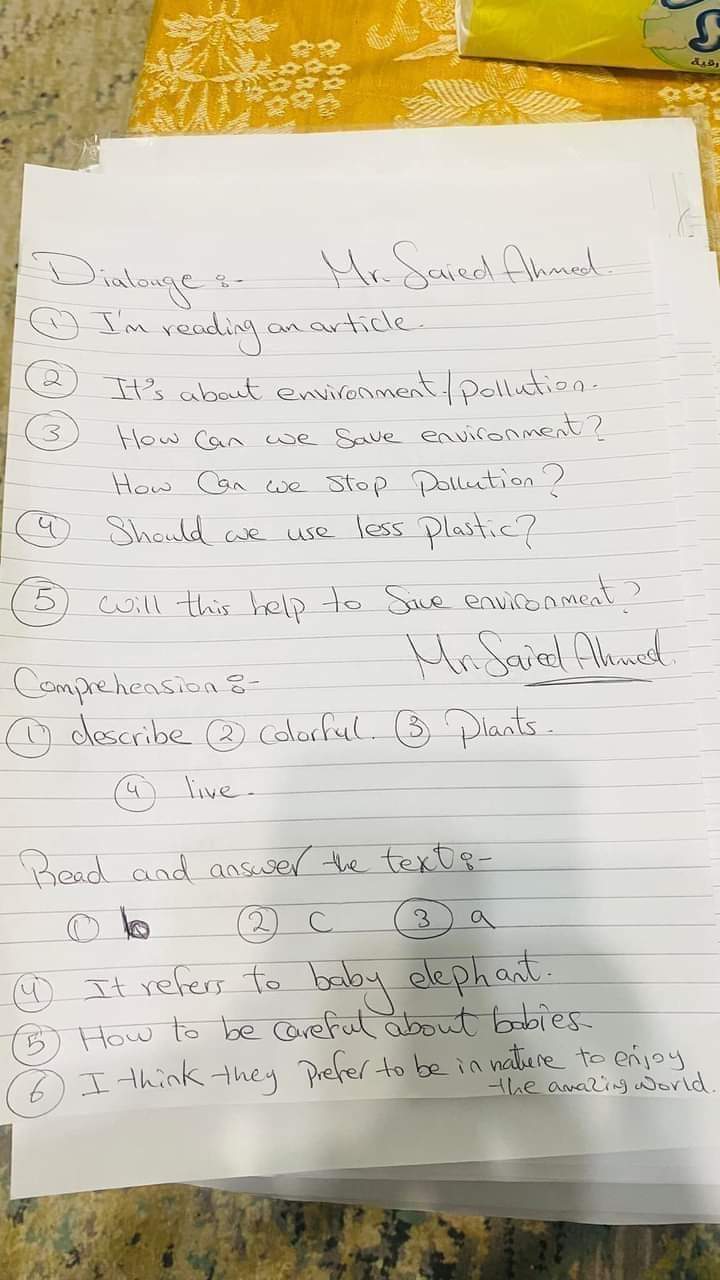 رقية
Dialouge :- Mr. Saied Ahmed.
① I'm reading an article.
② It's about environment./pollution.
③ How Can we Save environment?
How Can we Stop Pollution?
④ Should we use less plastic?
⑤ Will this help to Save environment?
Mr. Saied Ahmed.
Comprehension :-
① describe ② Colorful. ③ Plants.
④ live.
Read and answer the text :-
① b ② c ③ a
④ It refers to baby elephant.
⑤ How to be careful about babies
⑥ I think they Prefer to be in nature to enjoy
the amazing world.